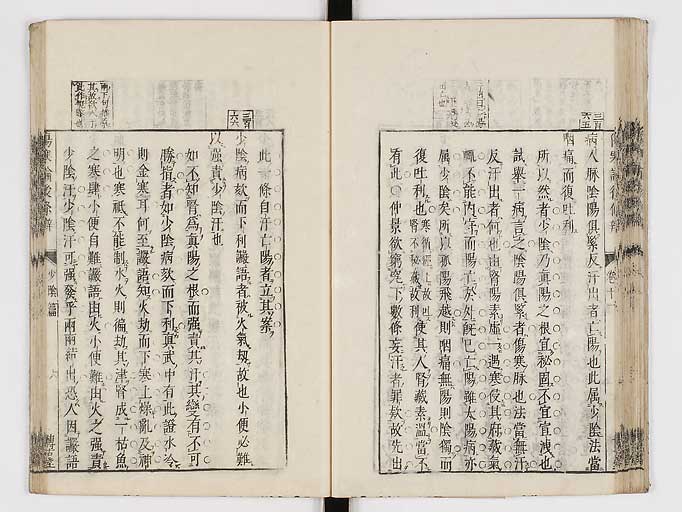 病人脉陰陽俱緊反汗出者亡陽也此属少陰法當
咽痛而復吐利
所以然者少陰乃真陽之根宜祕固不宜宣洩也
試舉一病言之陰陽俱緊者傷寒脉也法當無汗
反汗出者何也由腎陽素虛一遇寒侵其府藏氣
不能内守而陽亡於外既已亡陽雖太陽病亦
属少陰矣所以孤陽飛越則咽痛無陽則陰獨而
復吐利也寒循經上故吐腎不祕藏故利使其人腎藏素溫當不
有此仲景欲窮究下數條妄汗者罪欸故先出
此一條自汗亡陽者立其案
少陰病欬而下利讝語者被火氣刼故也小便必難
以强責少陰汗也
如不知腎為真陽之根而强責其汗其變有不可
勝指者如少陰病欬而下利真武中有此證水冷
則金寒耳何至讝語知火劫而下寒上燥亂及神
明也寒祗不能制水火則徧劫其津腎成一枯魚
之寒肆小便自難讝語由火小便難由火之强責
少陰汗少陰汗可强發乎兩兩結出恐人因讝語
三百六五
三百六六
傷寒論後條辨
卷十
少陰篇